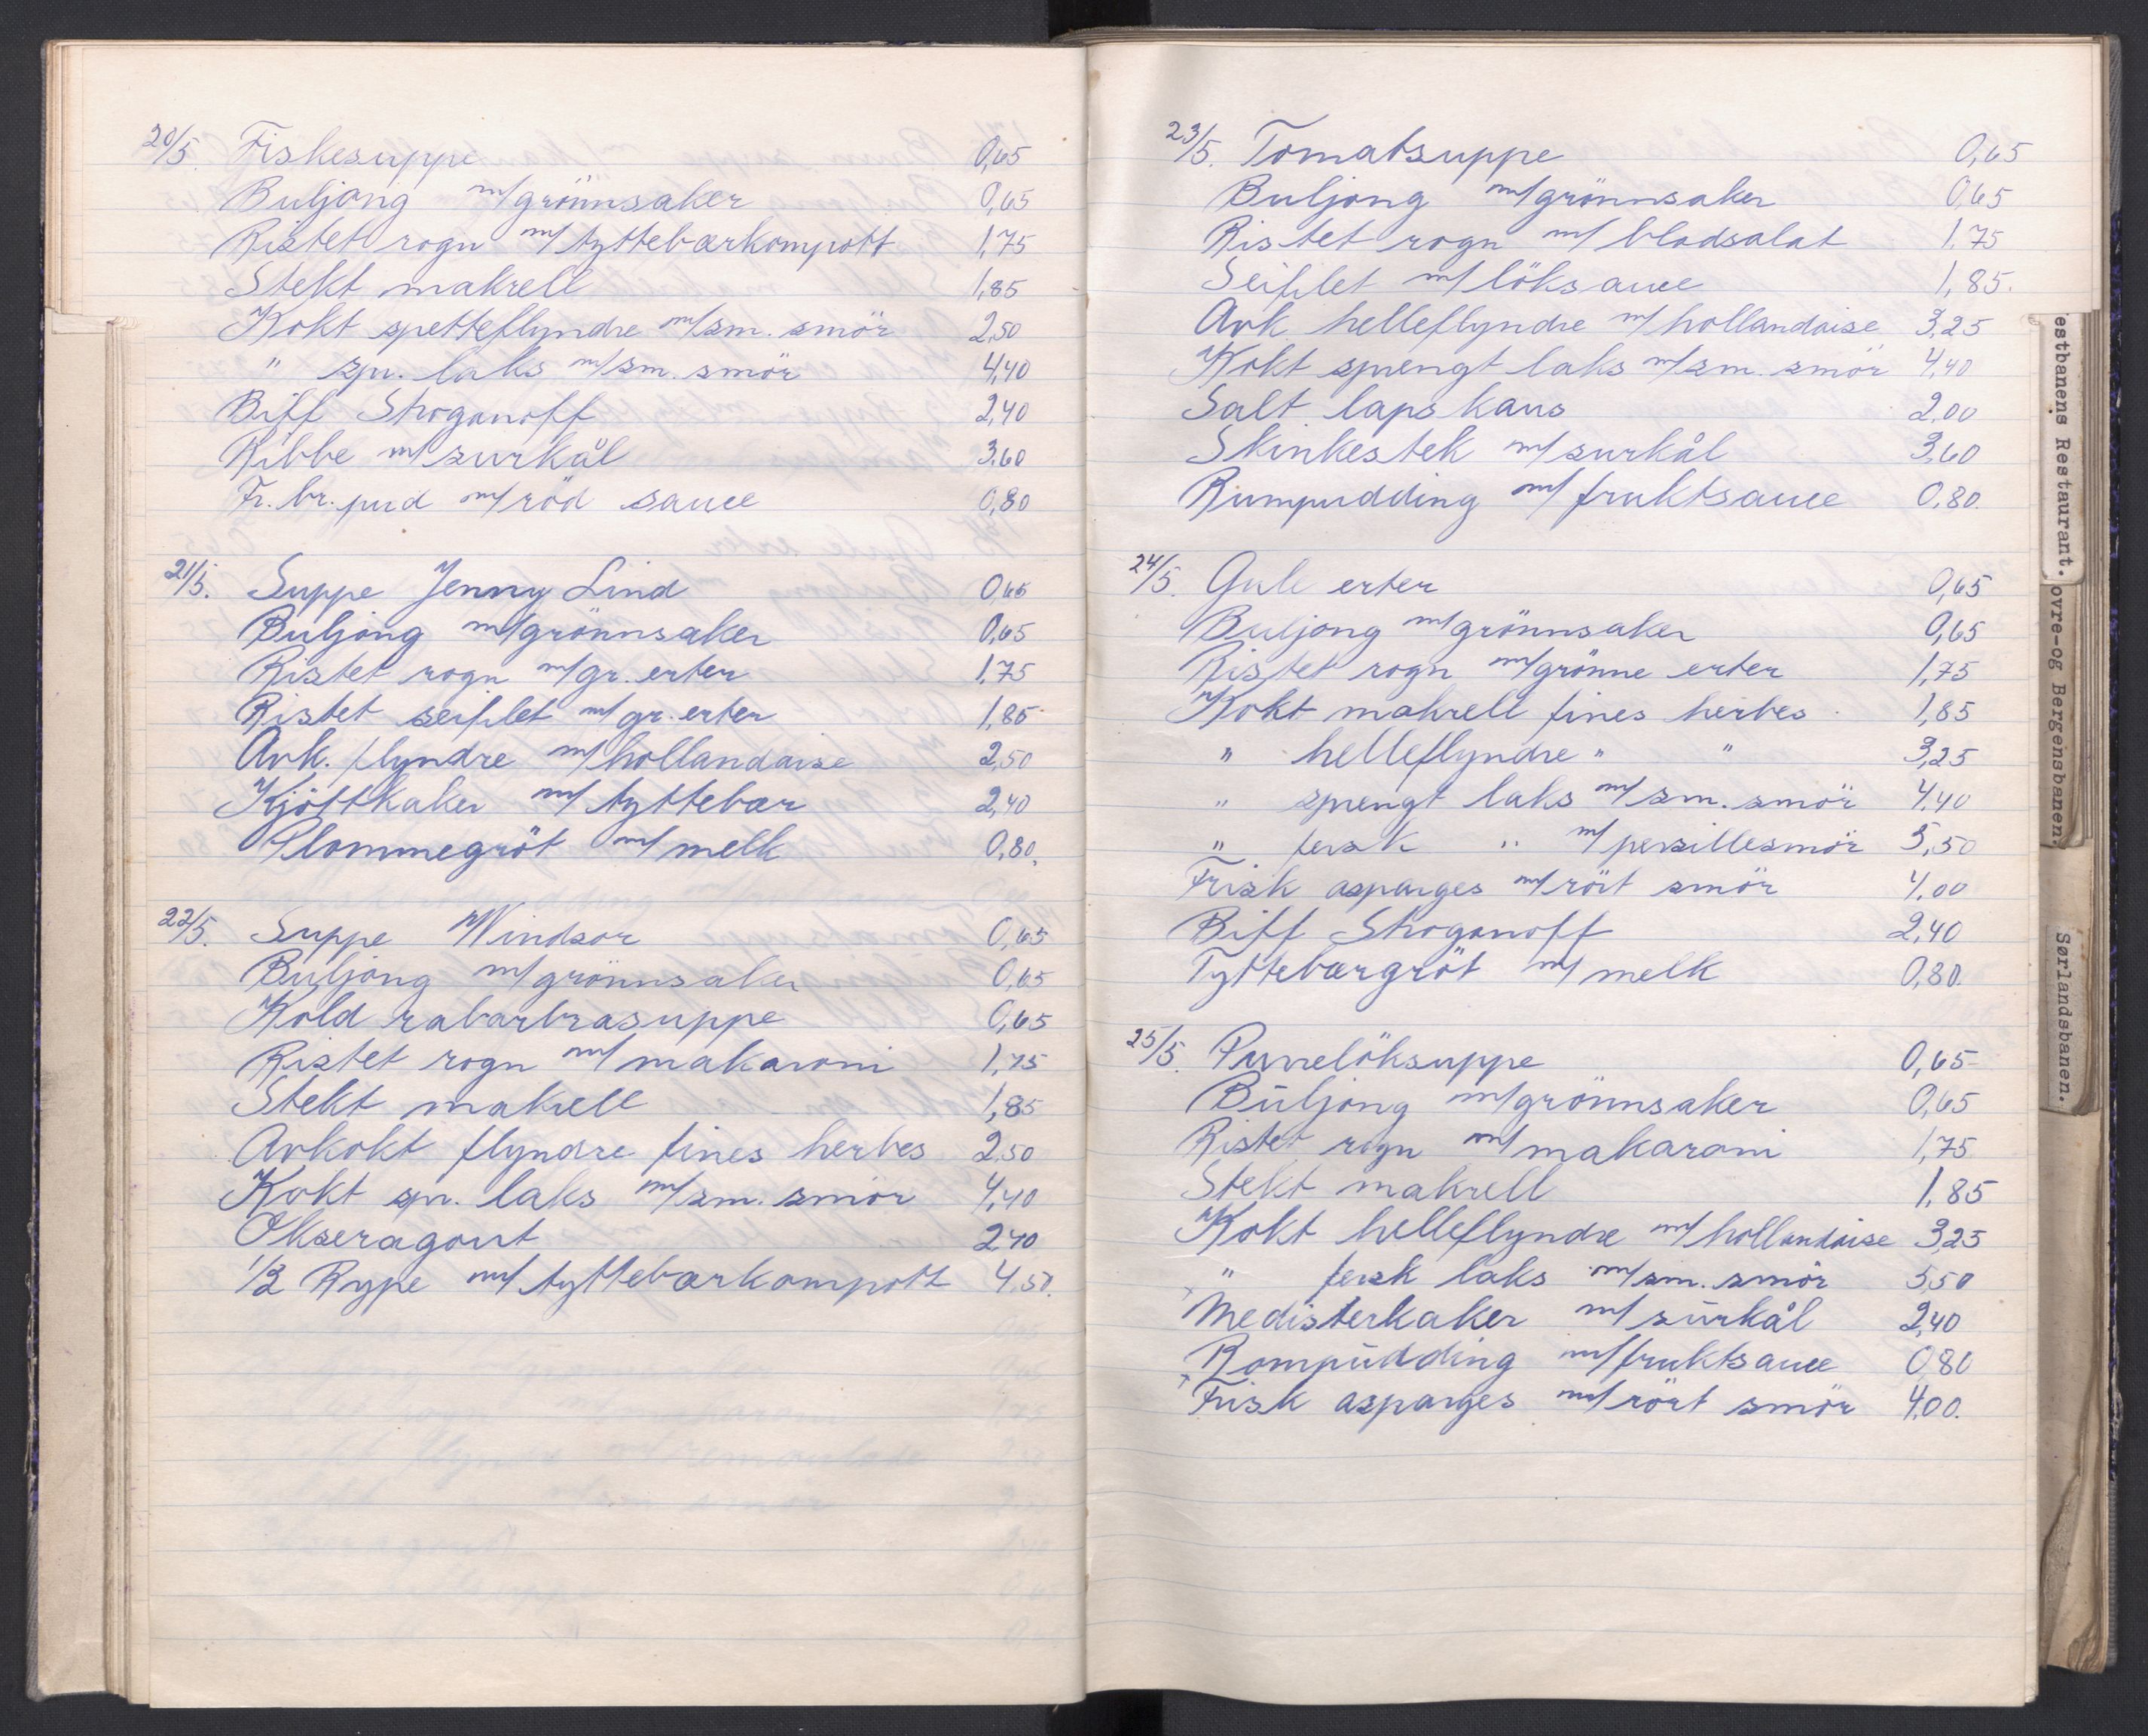 20/5. Fiskesuppe 0,65
Buljong m/grönnsaker 0,65
Ristet rogn m/tyttebærkompott 1,75
Stekt makrell 1,85
Kokt spetteflyndre m/sm. smör 2,50
" spr. laks m/sm. smör 4,40
Biff Stroganoff 2,40
Ribbe m/surkål 3,60
Fr. br. pud m/röd sauce 0,80
21/5. Suppe Jenny Lind 0,65
Buljong m/grönnsaker 0,65
Ristet rogn m/gr. erter 1,75
Ristet seifilet m/gr. erter 1,85
Avk. flyndre m/hollandaise 2,50
Kjöttkaker m/tyttebær 2,40
Plommegröt m/melk 0,80.
22/5. Suppe Windsor 0,65
Buljong m/grönnsaker 0,65
Kold rabarbrasuppe 0,65
Ristet rogn m/makaroni 1,75
Stekt makrell 1,85
Avkokt flyndre fines herbes 2,50
Kokt spr. laks m/sm. smör 4,40
Okseragout 2,40
1/2 Rype m/tyttebærkompott 4,50.
23/5. Tomatsuppe 0,65
Buljong m/grönnsaker 0,65
Ristet rogn m/bladsalat 1.75
Seifilet m/löksauce 1,85.
Avk. helleflyndre m/hollandaise 3,25
Kokt sprengt laks m/sm. smör 4,40
Salt lapskaus 2,00
Skinkestek m/surkål 3,60
Rumpudding m/fruktsauce 0,80.
24/5. Gule erter 0,65
Buljong m/grönnsaker 0,65
Ristet rogn m/grönne erter 1,75
Kokt makrell fines herbes 1,85
" helleflyndre " " 3,25
" sprengt laks m/sm. smör 4,40
" fersk " m/persillesmör 5,50
Frisk asparges m/rört smör 4,00
Biff Stroganoff 2,40
Tyttebærgröt m/melk 0,80.
25/5. Purrelöksuppe 0,65
Buljong m/grönnsaker 0,65
Ristet rogn m/makaroni 1,75
Stekt makrell 1,85
Kokt helleflyndre m/hollandaise 3,25
" fersk laks m/sm. smör 5,50
Medisterkaker m/surkål 2,40
Rompudding m/fruktsauce 0,80
Frisk asparges m/rört smör 4,00.
estbanens Restaurant.
ovre-og Bergensbanen.
Sørlandsbanen.